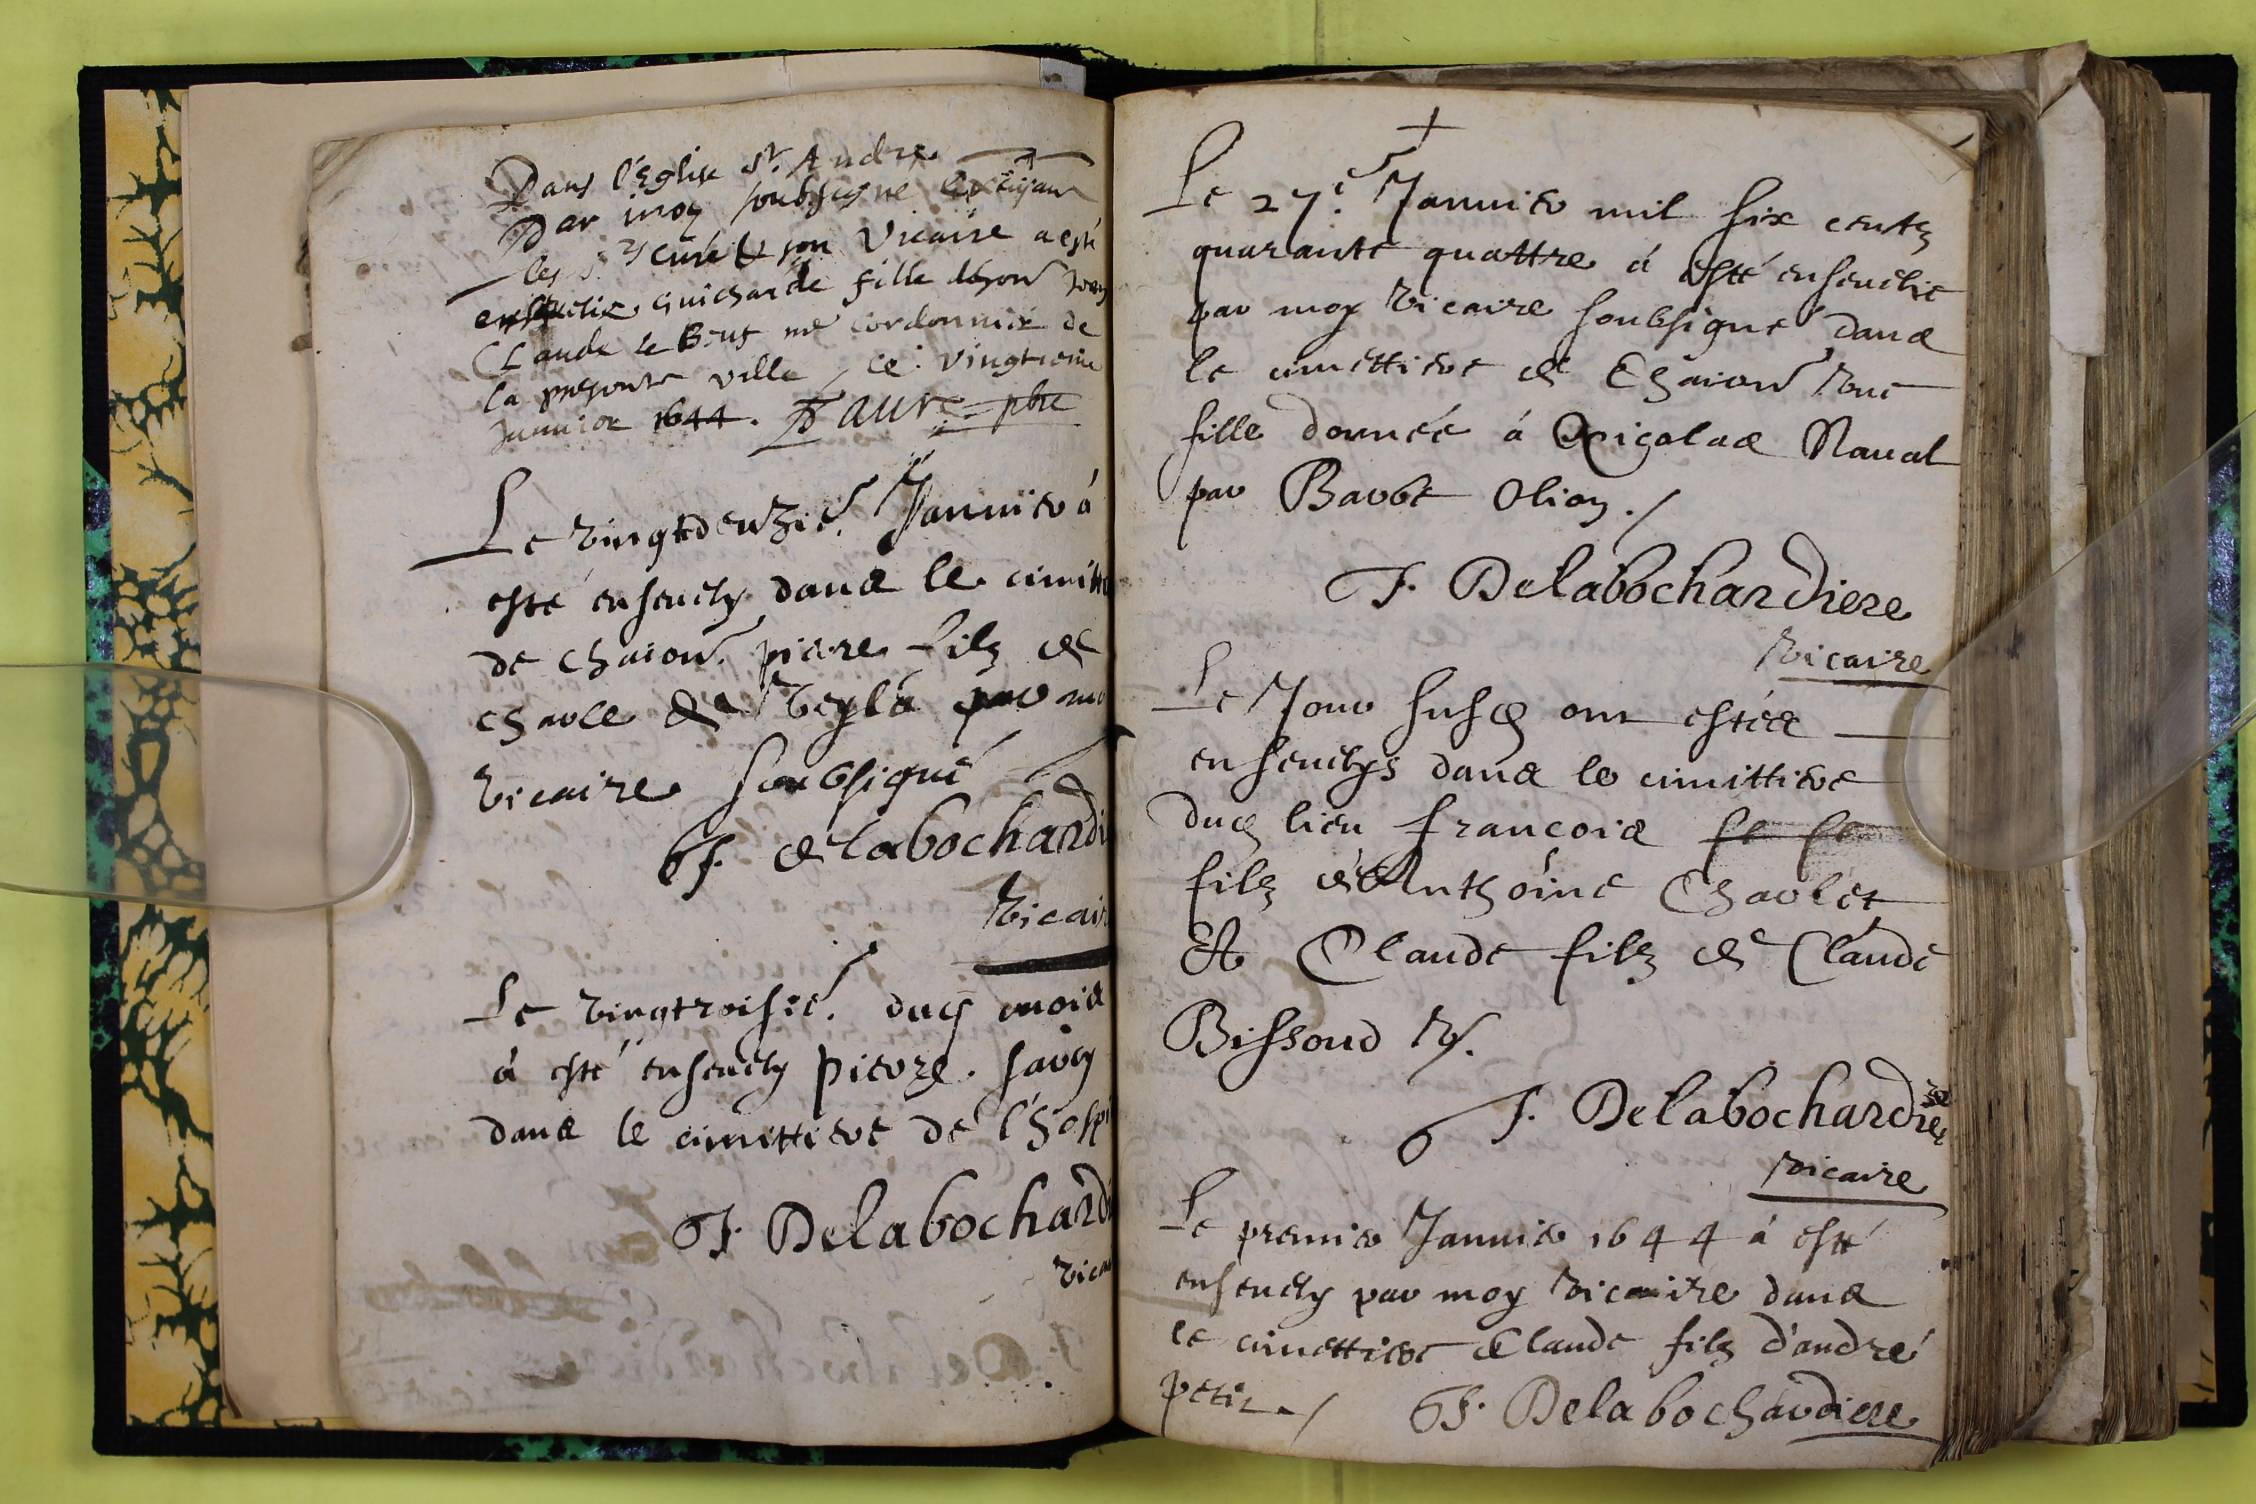 Dans l'Eglise St. Andre
Par moy soubsigne
les srs curé & son Vicaire a esté
Guicharde fille de
Claude le Beuf me cordonnier de
la presente ville, ce vingtieme
Januier 1644. Faure pbre
Le vingtdeuxié. Januier á
esté enseuely dans le cimitt
de chaion. pierre filz de
charle de par mo
vicaire soubsigné
J. delabochardi
vicair
Le vingtroisié. dud mois
á esté enseuely pierre. Sauy
dans le cimittiere de l'hospi
J. Delabochardi
vica
Le 27e. Januier mil six centz
quarante quattre á esté enseuelie
par moy vicaire soubsigné dans
le cimettiere de Chaion une
fille donnée á Nicolas Naual
par Barbe Olion. /
J. Delabochardiere
vicaire
Le Jour susd ont estés
enseuelys dans le cimittiere
dud lieu francois
filz d'Anthoine Charlet
Et Claude filz de Claude
Bissond
J. Delabochardiere
vicaire
Le premier Januier 1644 á esté
enseuely par moy vicaire dans
le cimettiere Claude filz d'andré
petit. / J. Delabochardiere